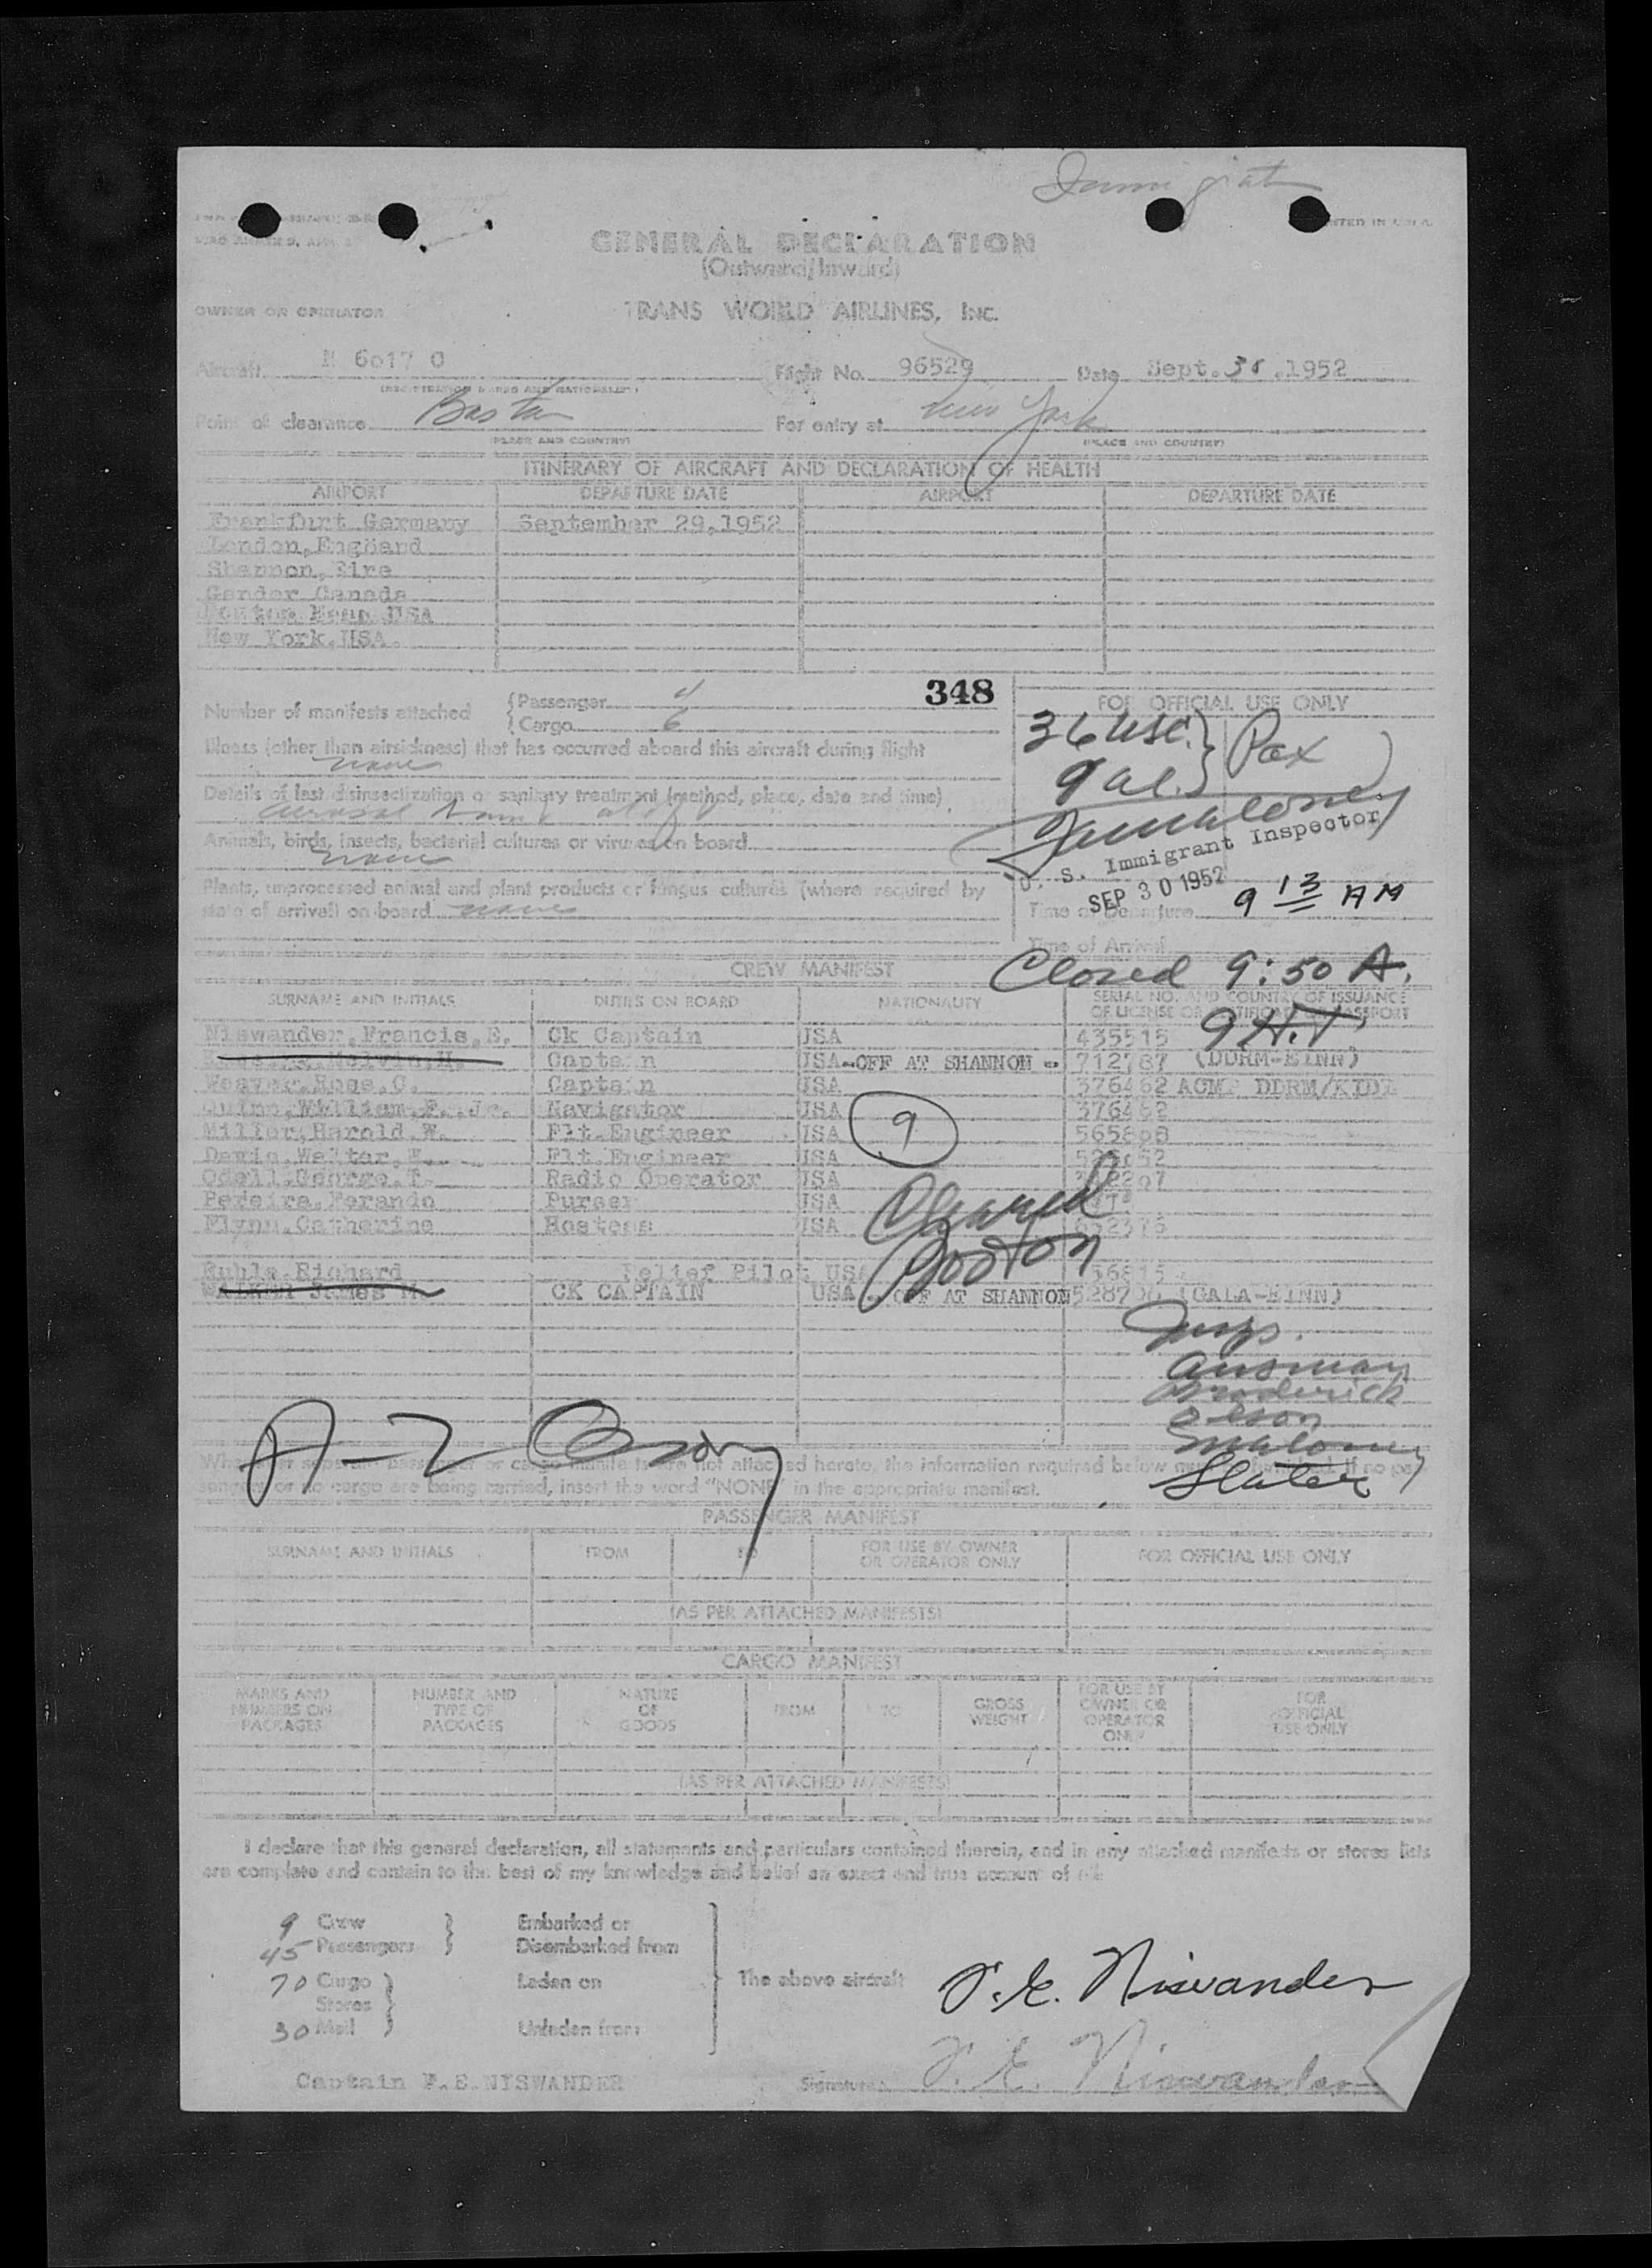 Immigrat
GENERAL DECLARATION
(Outward/Inward)
OWNER OR OPERATOR TRANS WORLD AIRLINES, INC.
Aircraft N 6017 C Flight No. 96529 Date Sept. 30, 1952
(REGISTRATION MARKS AND NATIONALITY)
Point of clearance Boston For entry at New York
(PLACE AND COUNTRY) (PLACE AND COUNTRY)
ITINERARY OF AIRCRAFT AND DECLARATION OF HEALTH
AIRPORT DEPARTURE DATE AIRPORT DEPARTURE DATE
Frankfurt Germany September 29,1952
London,Engöand
Shannon,Eire
Gander Canada
USA
New York.USA.
348
Number of manifests attached
Passenger 4
Cargo 6
FOR OFFICIAL USE ONLY
36 USC. } Pax
9 al.
Illness (other than airsickness) that has occurred aboard this aircraft during flight
none
Details of last disinsectization or sanitary treatment (method, place, date and time)
aerosol
Animals, birds, insects, bacterial cultures or viruses on board
none
Plants, unprocessed animal and plant products or fungus cultures (where required by
state of arrival) on board none
U. S. Immigrant Inspector
SEP 30 1952
Time of Departure 9 13 AM
Time of Arrival
Closed 9:50 A.
CREW MANIFEST
SURNAME AND INITIALS DUTIES ON BOARD NATIONALITY SERIAL NO. AND COUNTRY OF ISSUANCE
OF LICENSE OR CERTIFICATE PASSPORT
Niswander,Francis,E. Ck Captain USA 435515
Melvin,H. Captain USA--OFF AT SHANNON - 712787 (DDRM-EINN)
Weaver,Hoge,C. Captain USA 376462 ACMP
Quinn,William,F.,Jr. Navigator USA
Miller,Harold,W. Flt.Engineer USA
Davis,Walter,H. Flt.Engineer USA
Odell,George,T. Radio Operator USA
Pereira,Ferando Purser USA
Flynn,Catherine Hostess USA
9
Cleared
Boston
Ruhle,Richard Relief Pilot USA
James M. CK CAPTAIN USA - OFF AT SHANNON (GALA-EINN)
Insps.
Ausman
Broderick
Olson
Maloney
Slater
Whenever separate passenger or cargo manifests are not attached hereto, the information required below must be furnished. If no pas-
sengers or no cargo are being carried, insert the word "NONE" in the appropriate manifest.
PASSENGER MANIFEST
SURNAME AND INITIALS FROM TO FOR USE BY OWNER OR OPERATOR ONLY FOR OFFICIAL USE ONLY
(AS PER ATTACHED MANIFESTS)
CARGO MANIFEST
MARKS AND NUMBERS ON PACKAGES NUMBER AND TYPE OF PACKAGES NATURE OF GOODS FROM TO GROSS WEIGHT FOR USE BY OWNER OR OPERATOR ONLY FOR OFFICIAL USE ONLY
(AS PER ATTACHED MANIFESTS)
I declare that this general declaration, all statements and particulars contained therein, and in any attached manifests or stores lists
are complete and contain to the best of my knowledge and belief an exact and true account of
9 Crew Embarked or
45 Passengers Disembarked from
70 Cargo Laden on The above aircraft F. E. Niswander
Stores
30 Mail Unladen from
Captain F.E.NISWANDER Signature F. E. Niswander